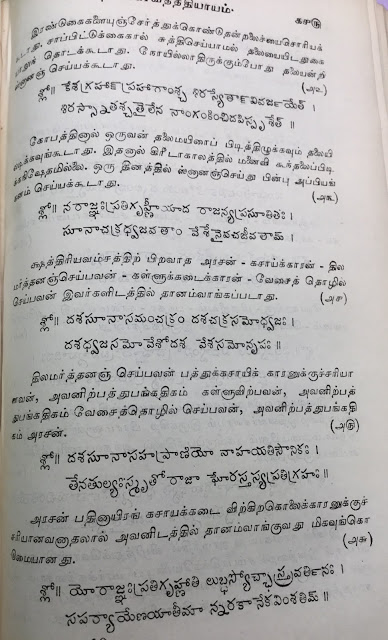 இரண்டுகைகளையுஞ்சேர்த்துக்கொண்டுதன்தலைச்சையைசொறியக்
கூடாது. சாப்பிட்டுக்கைகால் சுத்திசெய்யாமல் தலையையிடதுகை
தொடக்கூடாது. கோயில்லாதிருக்கும்போது தலையன்றி
செய்யக்கூடாது. (௮௨)
శ్లో॥ కేశగ్రహాన్ ప్రహారాంశ్చ శిరస్యేతాన్ వివర్జయేత్ ।
శిరస్స్నాతశ్చతైలేన నాంగంకించిదపిస్పృశేత్ ॥
கோபத்தினால் ஒருவன் தலைமயிரைப் பிடித்திழுக்கவும் தலையி
லடிக்கவுங்கூடாது. இதனால் கிரீடாகாலத்தில் மனைவி கூந்தலைப்பிடி
க்கநிஷேதமில்லை. ஒரு தினத்தில் ஸ்னானஞ்செய்து பின்பு அப்பியங்
னம் செய்யக்கூடாது. (௮௩)
శ్లో॥ నరాజ్ఞఃప్రతిగృహ్ణీయాద రాజన్యప్రసూతితః ।
సూనాచక్రధ్వజవతాం వేశేనైవచజీవతామ్ ।
க்ஷத்திரியவம்சத்திற் பிறவாத அரசன் - கசாய்க்காரன் - தில
மர்த்தனஞ்செய்பவன் - கள்ளுக்கடைக்காரன் - வேசைத் தொழில்
செய்பவன் இவர்களிடத்தில் தானம்வாங்கப்படாது. (௮௪)
శ్లో॥ దశసూనాసమంచక్రం దశచక్రసమోధ్వజః ।
దశధ్వజసమోవేశోదశ వేశసమోనృపః ॥
திலமர்த்தனஞ் செய்பவன் பத்துக்கசாயிக் காரனுக்குச்சரியா
னவன், அவனிற்பத்துபங்கதிகம் கள்ளுவிற்பவன், அவனிற்பத்
துபங்கதிகம் வேசைத்தொழில் செய்பவன், அவனிற்பத்துபங்கதி
கம் அரசன். (௮௫)
శ్లో॥ దశసూనాసహస్రాణియో నాహయతిసౌనికః ।
తేనతుల్యఃస్మృతోరాజా ఘోరస్తస్యప్రతిగ్రహః ॥
அரசன் பதினாயிரங் கசாயக்கடை விற்கிறகொலைக்காரனுக்குச்
சரியானவனாதலால் அவனிடத்தில் தானம்வாங்குவது மிகவுங்கொ
டுமையானது. (௮௬)
శ్లో॥ యోరాజ్ఞఃప్రతిగృహ్ణాతి లుబ్ధస్యోచ్ఛాస్త్రవర్తినః ।
సపర్యాయేణయాతీమా న్నరకానేకవింశతిమ్ ॥